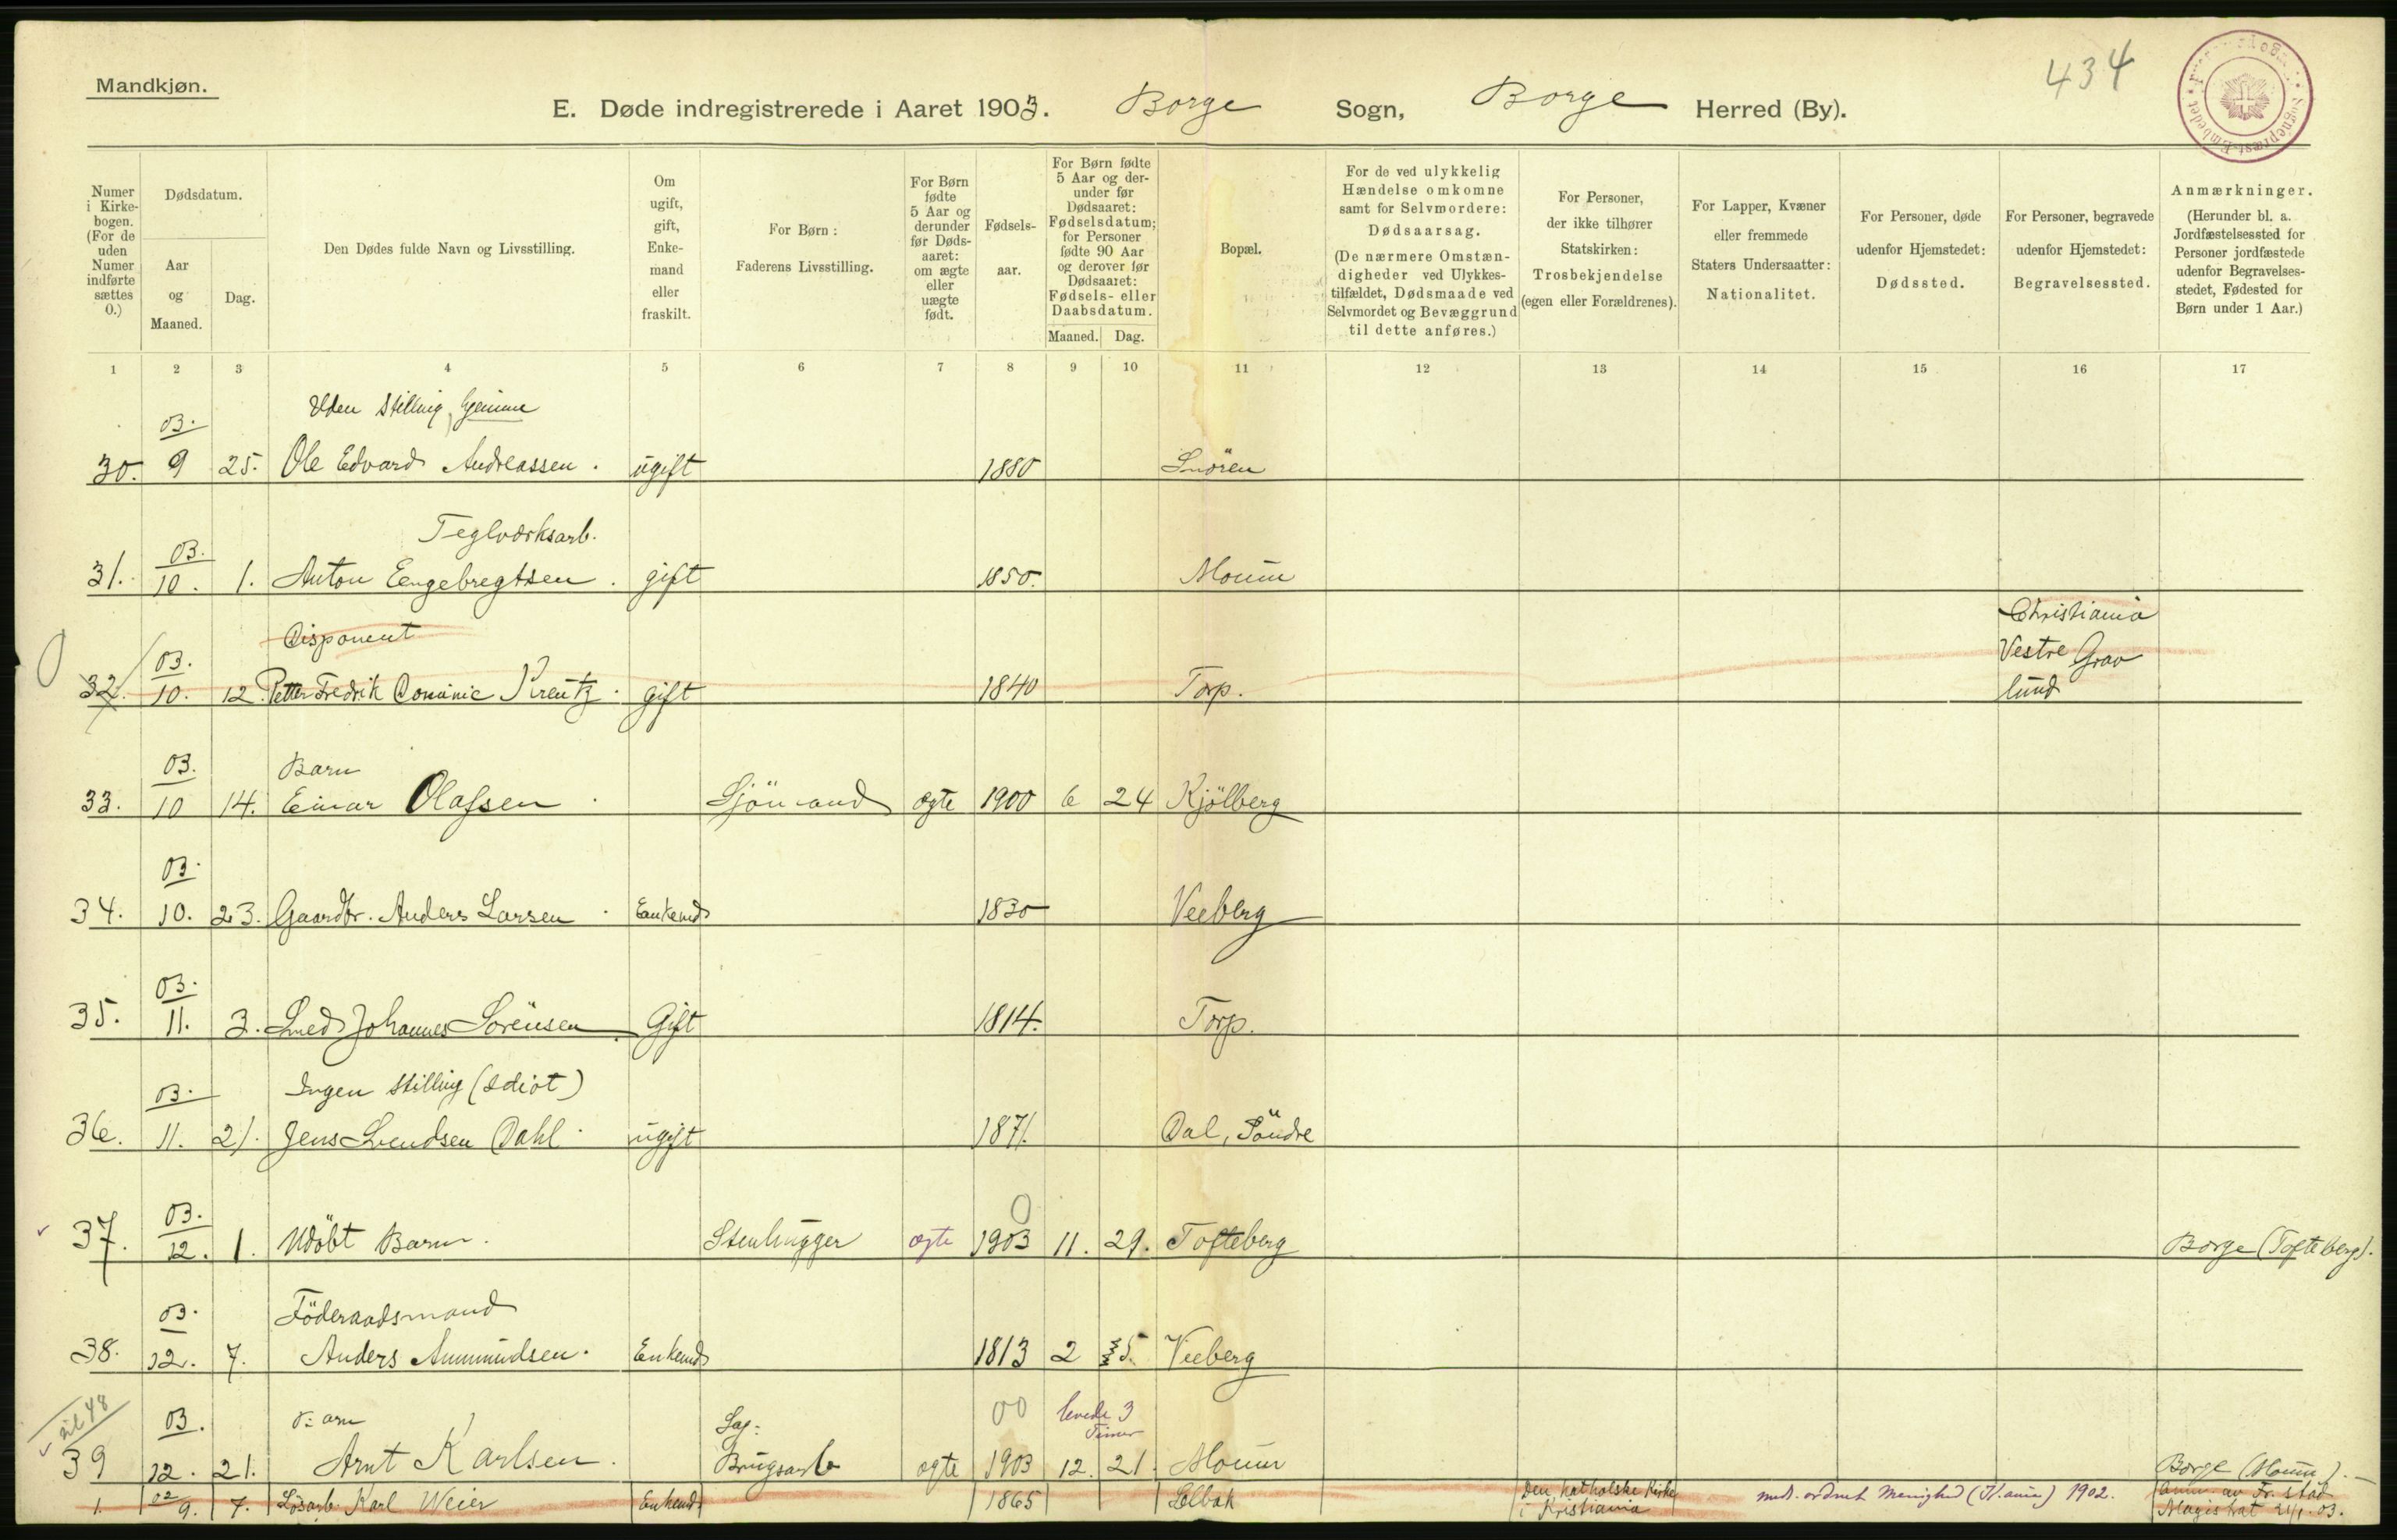 Mandkjøn.
434
E. Døde indregistrerede i Aaret 1903. Borge Sogn, Borge Herred (By).
Numer i Kirkebogen. (For de uden Numer indførte sættes 0.)
Dødsdatum.
Aar og Maaned.
Dag.
Den Dødes fulde Navn og Livsstilling.
Om ugift, gift, Enkemand eller fraskilt.
For Børn: Faderens Livsstilling.
For Børn fødte 5 Aar og derunder før Dødsaaret: om ægte eller uægte født.
Fødselsaar.
For Børn fødte 5 Aar og derunder før Dødsaaret: Fødselsdatum; for Personer fødte 90 Aar og derover før Dødsaaret: Fødsels- eller Daabsdatum.
Maaned. Dag.
Bopæl.
For de ved ulykkelig Hændelse omkomne samt for Selvmordere: Dødsaarsag.
(De nærmere Omstændigheder ved Ulykkestilfældet, Dødsmaade ved Selvmordet og Bevæggrund til dette anføres.)
For Personer, der ikke tilhører Statskirken: Trosbekjendelse (egen eller Forældrenes).
For Lapper, Kvæner eller fremmede Staters Undersaatter: Nationalitet.
For Personer, døde udenfor Hjemstedet: Dødssted.
For Personer, begravede udenfor Hjemstedet: Begravelsessted.
Anmærkninger.
(Herunder bl. a. Jordfæstelsessted for Personer jordfæstede udenfor Begravelsesstedet, Fødested for Børn under 1 Aar.)
1 2 3 4 5 6 7 8 9 10 11 12 13 14 15 16 17
Uden Stilling, hjemme
30. 03. 9 25. Ole Edvard Andreassen. ugift 1880
Teglværksarb.
31. 03. 10. 1. Anton Eengebregtsen. gift 1850. Moum
Disponent
32. 03. 10. 12. Petter Fredrik Dominic Kreutz. gift 1840 Torp. Christiania
Vestre Grav
lund
Barn
33. 03. 10 14. Einar Olafsen. Sjömand ægte 1900 6 24 Kjölberg
34. 03. 10. 23. Gaardbr. Anders Larsen. Enkemd 1830 Veeberg
35. 03. 11. 3. Smed Johannes Sörensen. Gift 1814. Torp.
Ingen Stilling (Idiot)
36. 03. 11. 21. Jens Svendsen Dahl. ugift 1871. Dal, Söndre
0
37. 03. 12. 1. Udöbt Barn. Stenhugger ægte 1903 11. 29. Tofteberg Borge (Tofteberg).
Föderaadsmand
38. 03. 12. 7. Anders Ammundsen. Enkemd 1813 2 5. Veeberg
til 48
Barn Sag- 00 levede 3 Timer
39 03. 12. 21. Arnt Karlsen. Brugsarb ægte 1903 12. 21. Moum Borge (Moum).
1. 02 9. 7. Lösarb. Karl Weier Enkemd 1865 Selbak Den katholske Kirke
i Kristiania
medl. ordnet Menighed (Kr.ania) 1902.
Anm. av Fr.stad
Magistrat 21/1 03.